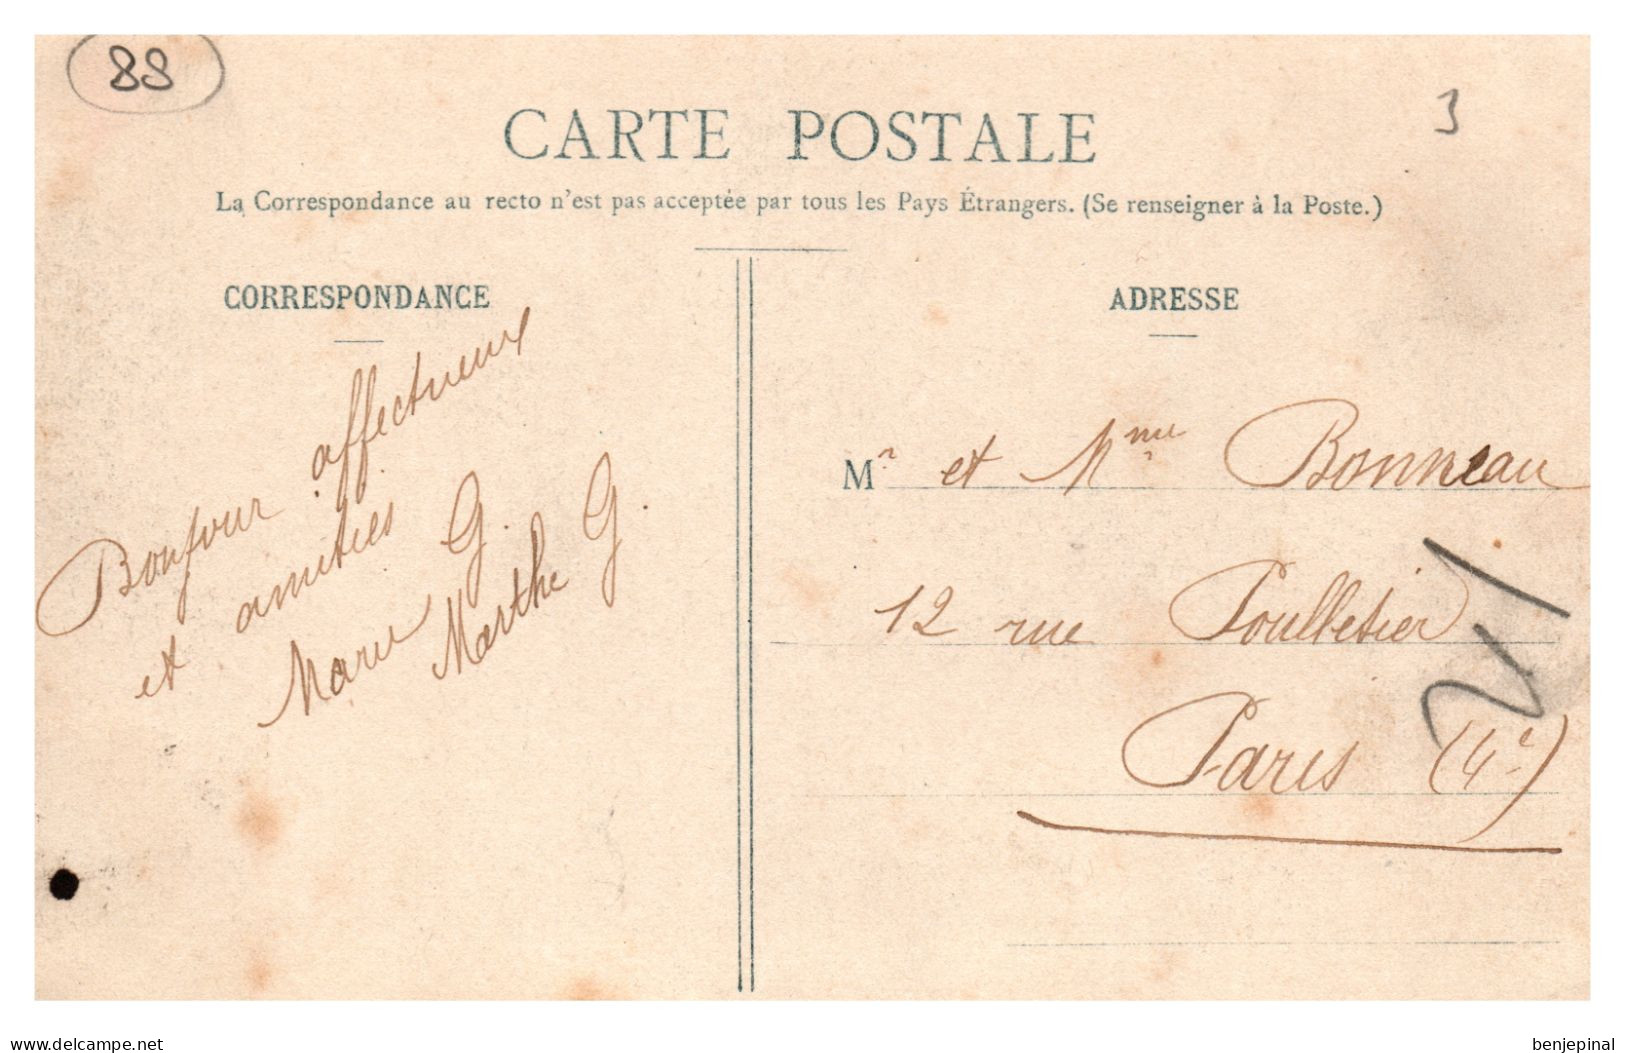 88
3
CARTE POSTALE
La Correspondance au recto n'est pas acceptée par tous les Pays Étrangers. (Se renseigner à la Poste.)
CORRESPONDANCE
Bonjour affectueux
et amitiés
Marie G.
Marthe G.
ADRESSE
Mr et Mme Bonneau
12 rue Poulletier
Paris (4e)
www.delcampe.net
benjepinal